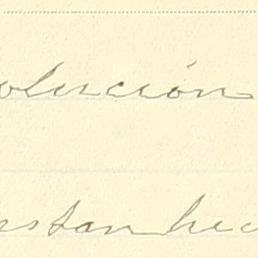 olución
estan hec